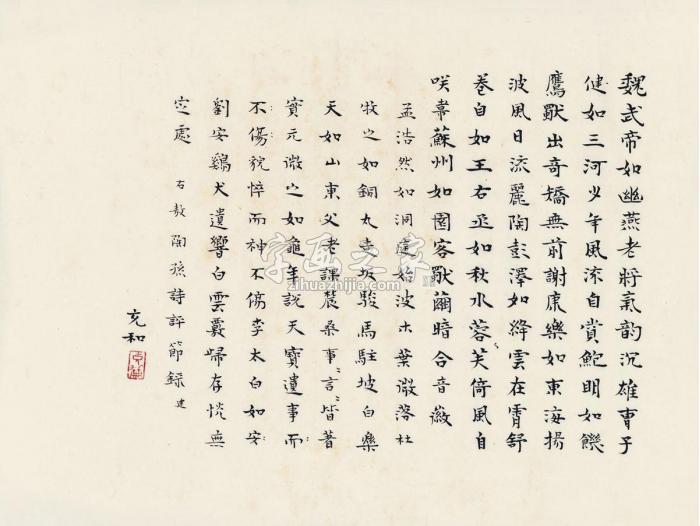 魏武帝如幽燕老將氣韵沉雄曹子
健如三河少年風流自賞鮑明如饑
鷹獨出奇矯無前謝康樂如東海揚
波風日流麗陶彭澤如絳雲在霄舒
卷自如王右丞如秋水蓉芙倚風自
咲韋蘇州如園客獨繭暗合音徽
孟浩然如洞庭始波木葉微落杜
牧之如銅丸走坂駿馬駐坡白樂
天如山東父老課農桑事〻言〻皆著
實元微之如龜年說天寶遺事而
不傷貌悴而神不傷李太白如安
劉安鷄犬遺響白雲覈歸存恍無
定處 右敖陶孫詩評節錄 建
充和
字画之家
zihuazhijia.com